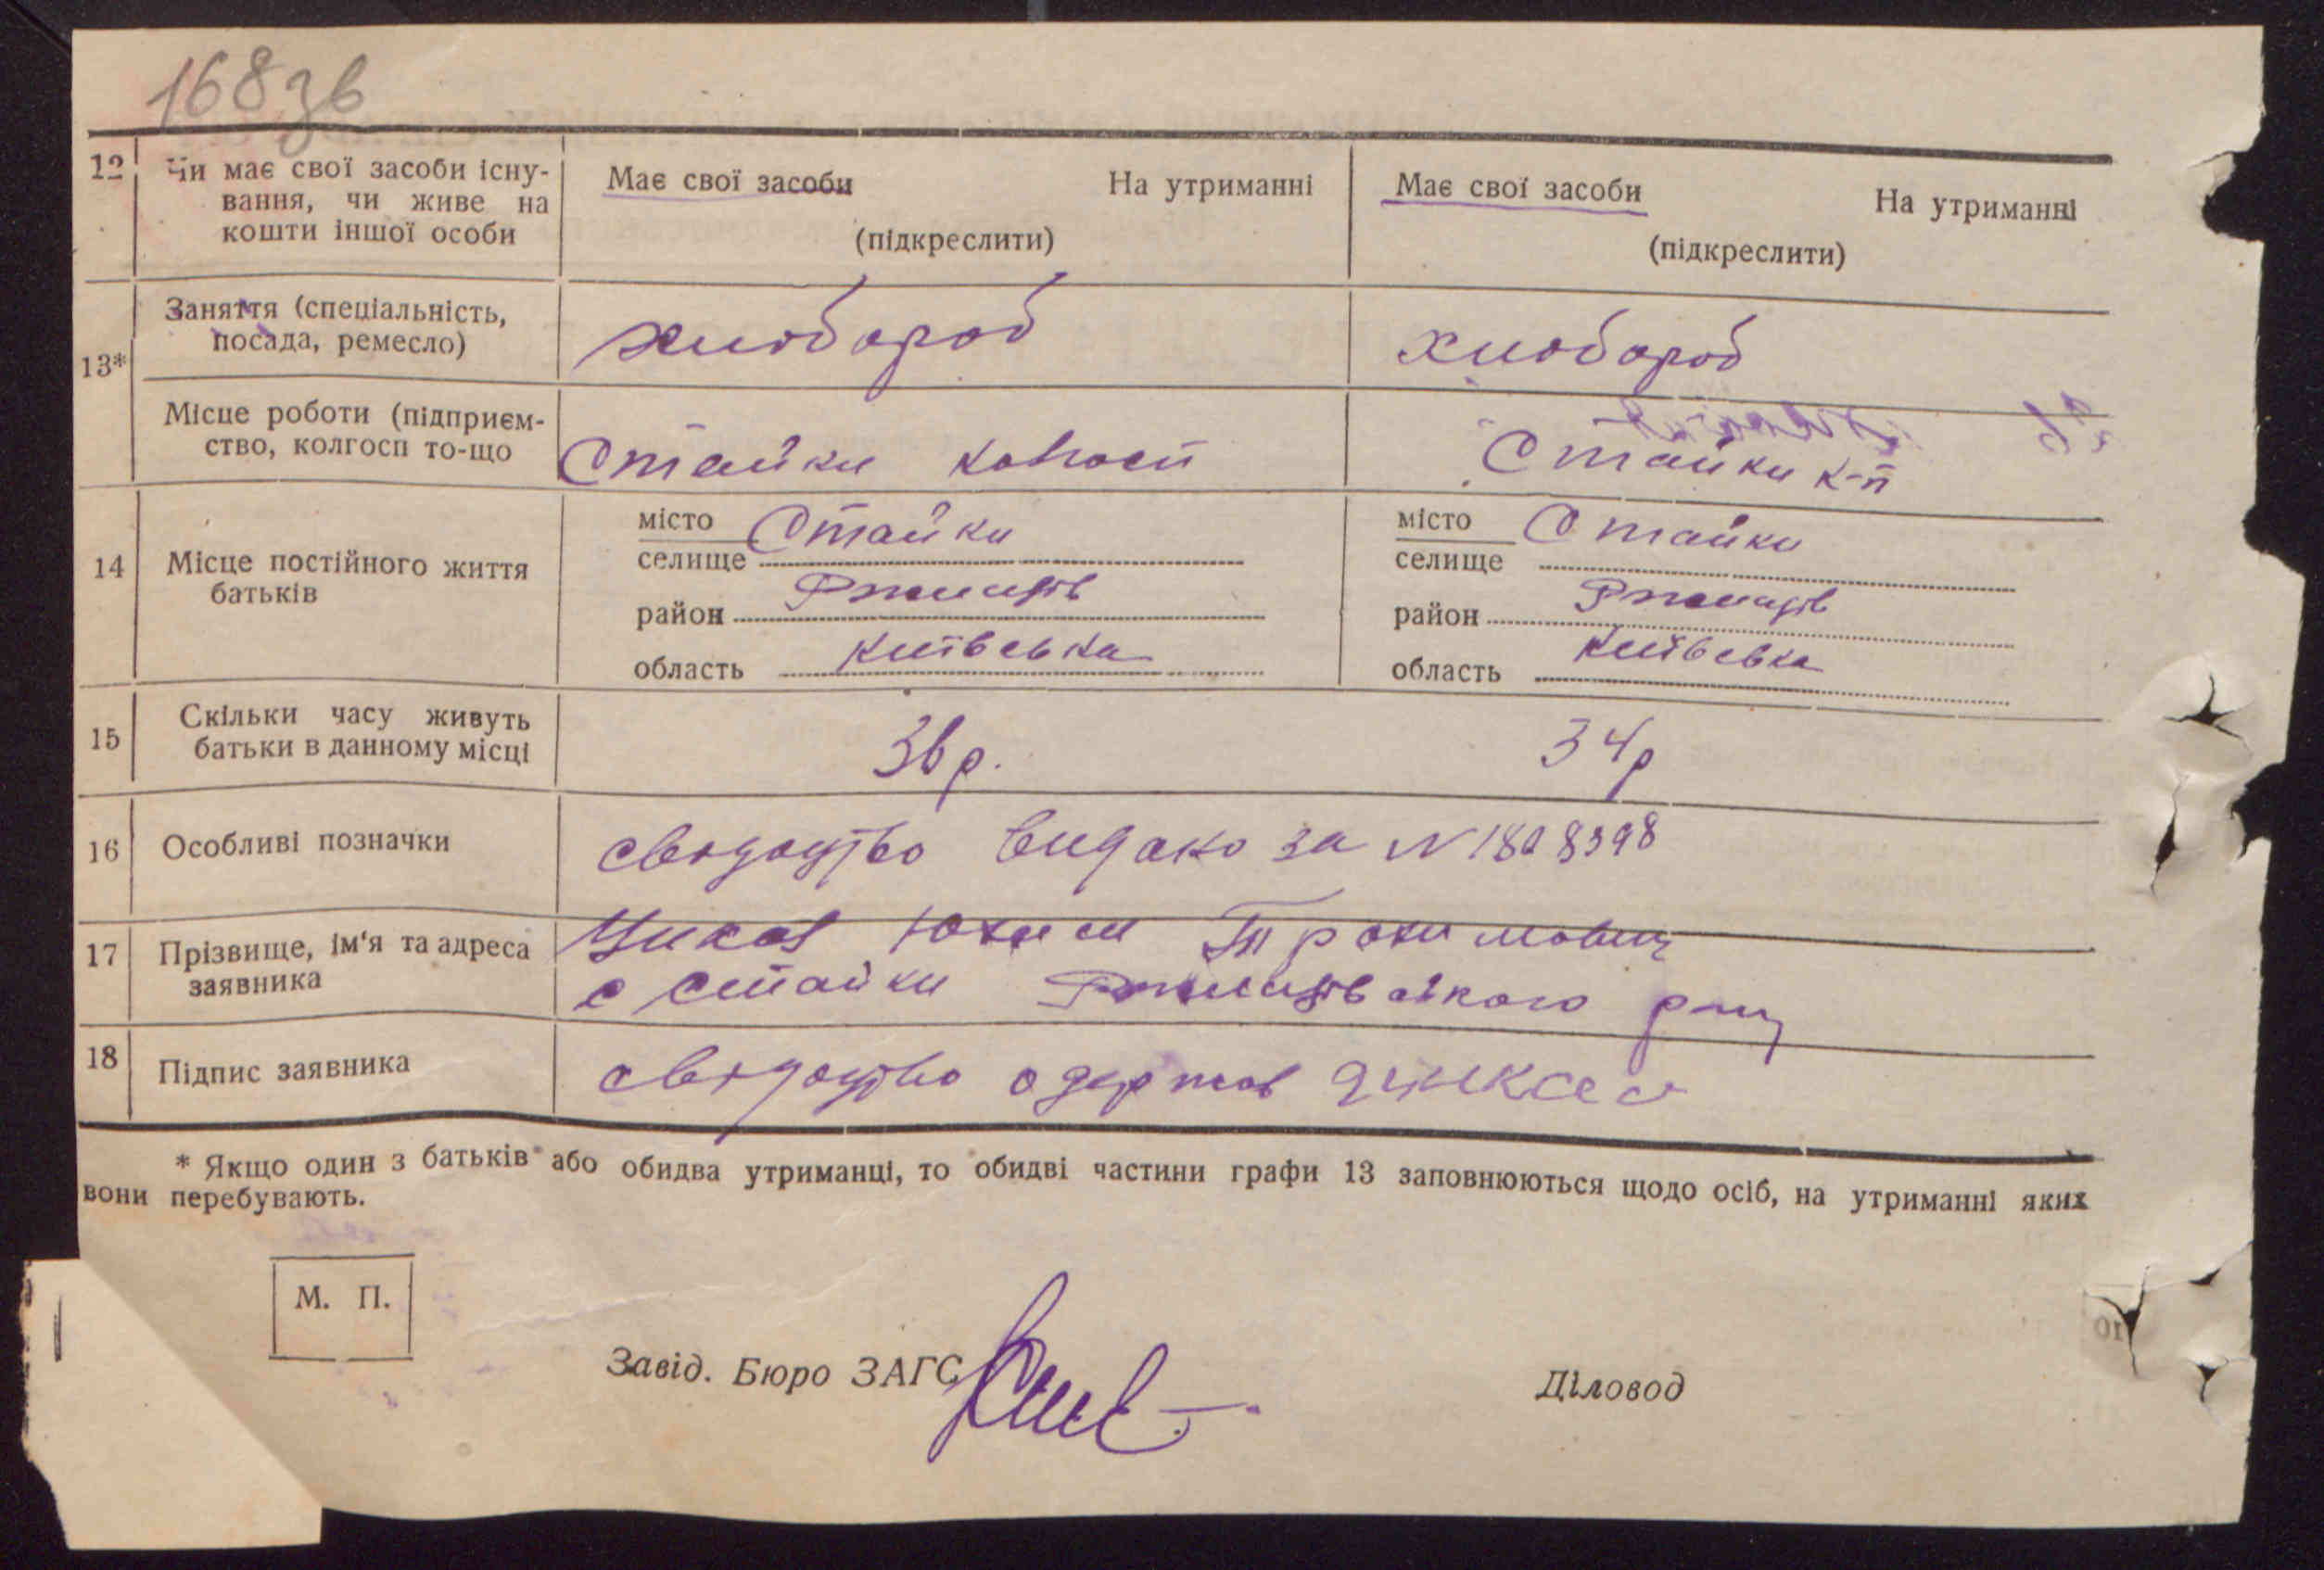 168зв
12 Чи має свої засоби існу- Має свої засоби На утриманні Має свої засоби На утриманні
вання, чи живе на
кошти іншої особи (підкреслити) (підкреслити)
Заняття (спеціальність, хлібороб хлібороб
посада, ремесло)
13*
Місце роботи (підприєм-
ство, колгосп то-що Стайки колгосп Стайки к-п
місто Стайки місто Стайки
селище селище
14 Місце постійного життя
батьків
район Ржищів район Ржищів
область Київська область Київська
15 Скільки часу живуть 36 р. 34 р
батьки в данному місці
16 Особливі позначки свідоцтво видано за N
17 Прізвище, ім'я та адреса Юхим Трохимович
заявника с Стайки Ржищівського р-ну
18 Підпис заявника свідоцтво одержав
* Якщо один з батьків або обидва утриманці, то обидві частини графи 13 заповнюються щодо осіб, на утриманні яких
вони перебувають.
М. П.
Завід. Бюро ЗАГС Діловод